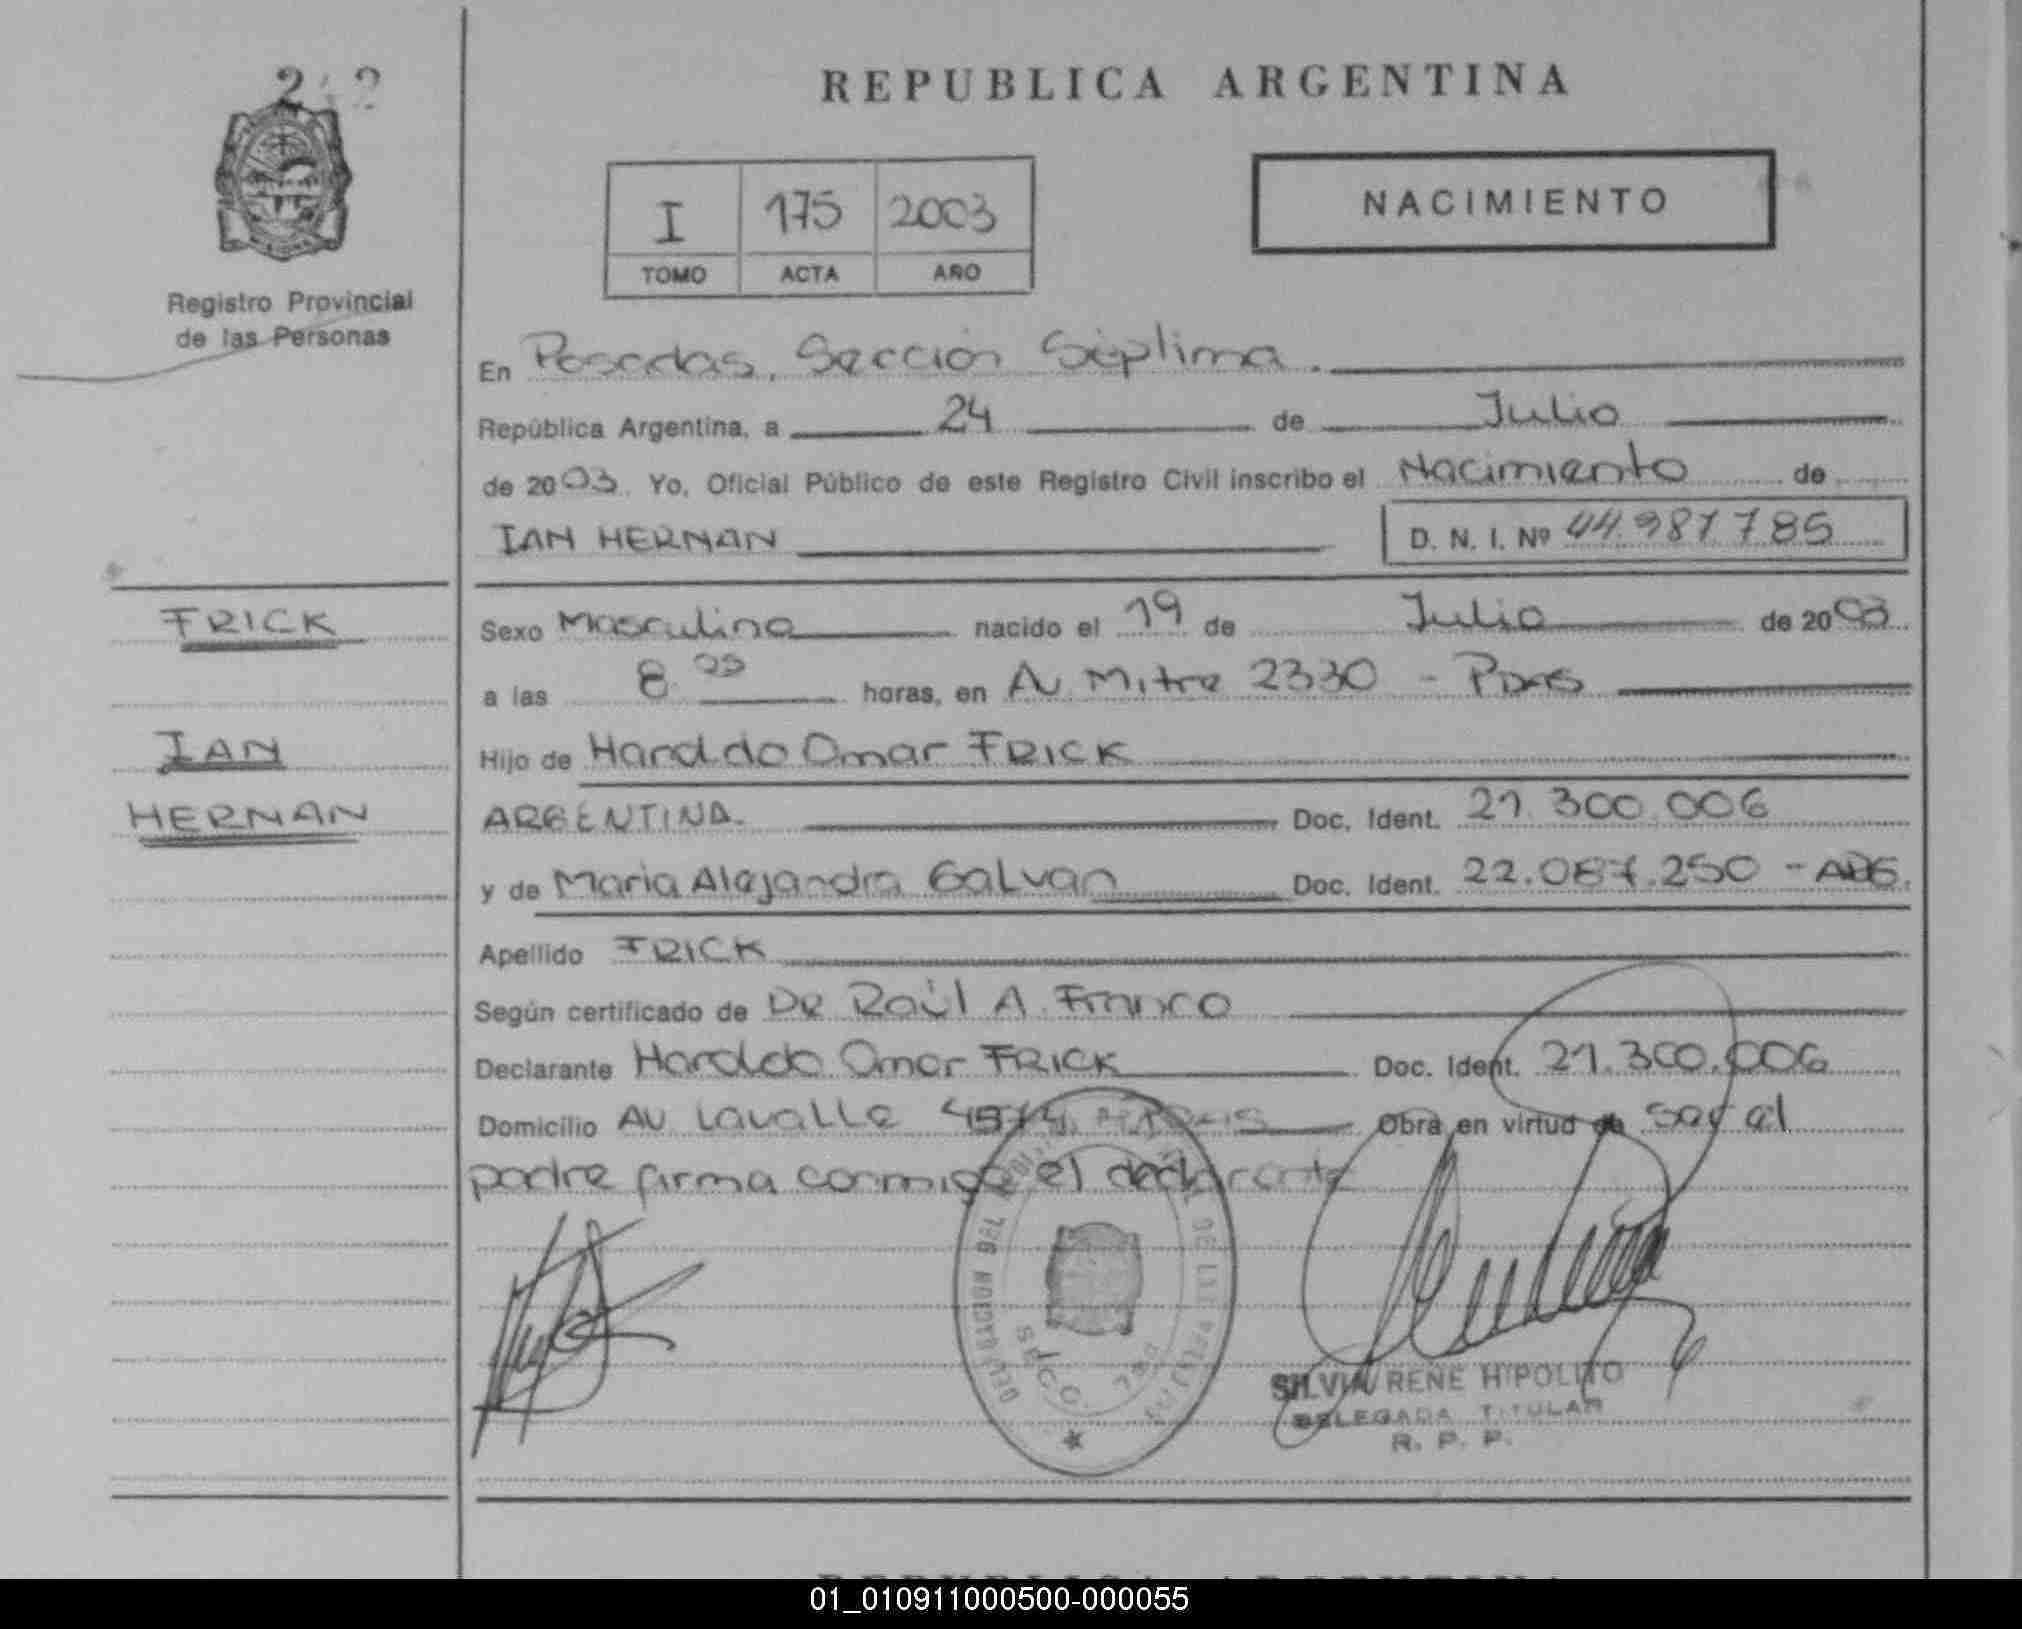 242
REPUBLICA ARGENTINA
I 175 2003
TOMO ACTA AÑO
NACIMIENTO
Registro Provincial
de las Personas
En Posadas, Sección Séptima.
República Argentina, a 24 de Julio
de 2003. Yo, Oficial Público de este Registro Civil inscribo el Nacimiento de
IAN HERNAN D. N. I. Nº 44.981785
FRICK
IAN
HERNAN
Sexo Masculino nacido el 19 de Julio de 2003
a las 8. horas, en Av Mitre 2330 - Pdas
Hijo de Haroldo Omar FRICK
ARGENTINA. Doc. Ident. 21.300.006
y de Maria Alejandra Galvan Doc. Ident. 22.087.250 - ARG.
Apellido FRICK
Según certificado de DR Raúl A. Franco
Declarante Haroldo Omar FRICK Doc. Ident. 21.300.006
Domicilio AV Lavalle Obra en virtud de Ser el
padre firma conmigo el declarante
SILVIA RENE HIPOLITO
DELEGADA TITULAR
R. P. P.
01_010911000500-000055